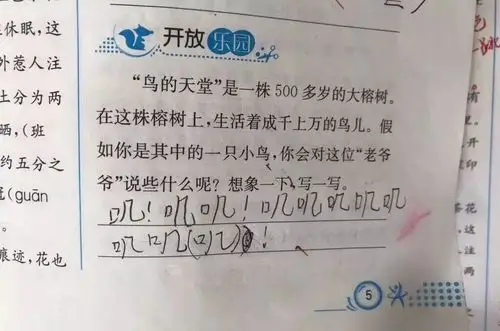 休眠，这
外惹人注
土分为两
晒，(班
约五分之
(guān
。
痕迹，花也
开放乐园
“鸟的天堂”是一株 500 多岁的大榕树。
在这株榕树上，生活着成千上万的鸟儿。假
如你是其中的一只小鸟，你会对这位“老爷
爷”说些什么呢？想象一下，写一写。
叽！叽叽！叽叽叽叽叽
叽叽(叽)！
5
开
印
花
这
注
两